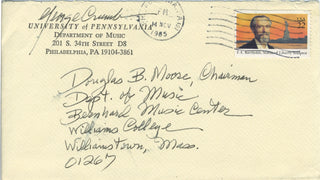 George Crumb
UNIVERSITY of PENNSYLVANIA
DEPARTMENT OF MUSIC
201 S. 34TH STREET D8
PHILADELPHIA, PA 19104-3861
PM
14 NOV
1985
22
USA
Douglas B. Moore, Chairman
Dept. of Music
Bernhard Music Center
Williams College
Williamstown, Mass.
01267